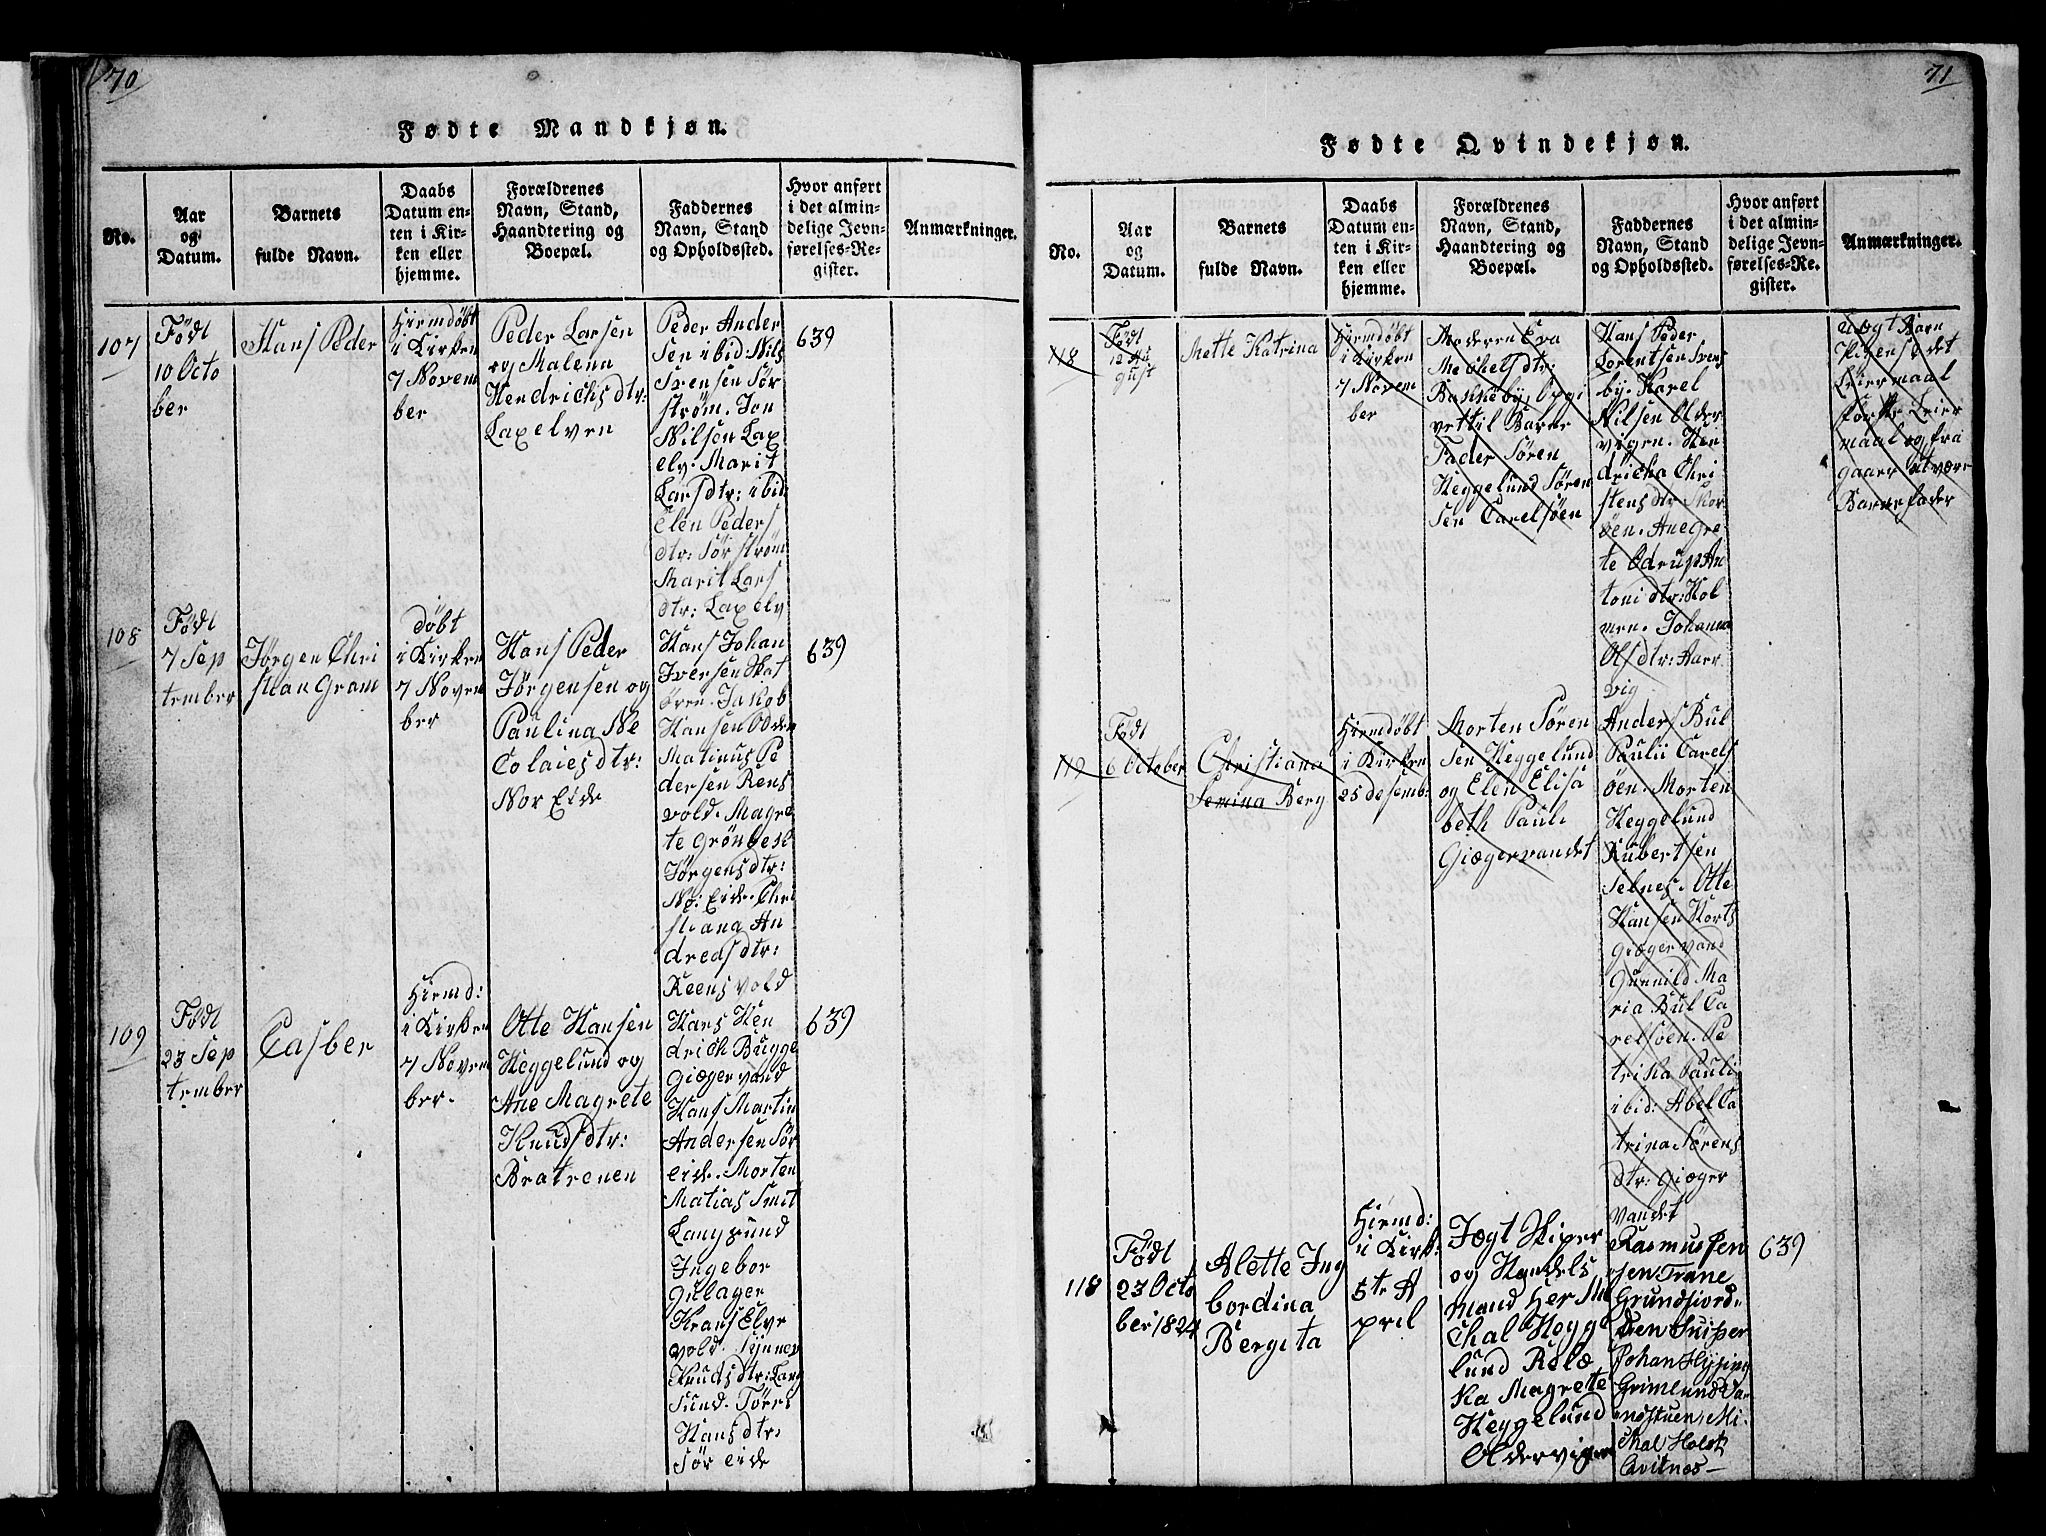 70
Fødte Mandkjøn.
No.
Aar
og
Datum.
Barnets
fulde Navn.
Daabs
Datum en-
ten i Kir-
ken eller
hjemme.
Forældrenes
Navn, Stand,
Haandtering og
Boepæl.
Faddernes
Navn, Stand
og Opholdssted.
Hvor anført
i det almin-
delige Jevn-
førelses-Re-
gister.
Anmærkninger.
107
Född
10 Octo
ber
Hans Peder
Hiemdöbt
i Kirken
7 Novem
ber
Peder Larsen
og Malena
Hendrichsdtr:
Laxelven
Peder Ander
sen ibid Nils
Svensen Sör
ström. Jon
Nilsen Lax
elv. Marit
Larsdtr: ibid
Elen Peders
dtr: Sörström
Marit Lars
dtr: Laxelv
639
108
Född
7 Sep
tember
Jörgen Chri
stian Gram
döbt
i Kirken
7 Novem
ber
Hans Peder
Jörgensen og
Paulina Ne
Colaiesdtr:
Nor Eide
Hans Johan
Iversen Kat
ören. Jakob
Hansen Odden
Matinus Pe
dersen Rens
vold. Magre
te Grönbesl
Jörgensdtr:
No: Eide. Chri
stiana An
dreasdtr:
Reensvold
639
109
Född
23 Sep
tember
Casber
Hiemd:
i Kirken
7 Novem
ber.
Otte Hansen
Heggelund og
Ane Magrete
Knudsdtr:
Bratrenen
Hans Hen
drich Bugge
Giægervand
Hans Martin
Andersen Sör
eide. Morten
Matias Smit
Langsund
Ingebor
Gulager
Krans Elve
vold.
Knudsdtr: Lang
sund.
Hansdtr.
Sör eide
639
71
Fødte Qvindekjøn.
No.
Aar
og
Datum.
Barnets
fulde Navn.
Daabs
Datum en-
ten i Kir-
ken eller
hjemme.
Forældrenes
Navn, Stand,
Haandtering og
Boepæl.
Faddernes
Navn, Stand
og Opholdssted.
Hvor anført
i det almin-
delige Jevn-
førelses-Re-
gister.
Anmærkninger.
118
Född
12 Au
gust
Mette Katrina
Hiemdöbt
i Kirken
7 Novem
ber
Moderen Eva
Mechelsdtr:
Bakkeby, Opgi
vet til Barne
Fader Sören
Heggelund Sören
sen Carelsöen
Hans Peder
Lorentsen Svens
by. Karel
Nilsen Older
vigen. Hen
dricha Chri
stensdtr Skor
öen. Anegre
te Odrup An
tonidtr: Hol
men. Johanna
Olsdtr: Aarr
vig
Uægt Barn
Pigens det
Leiermaal
förste Leier
maal og fra
gaaer at være
Barnefader
119
Född
6 October
Christiana
Semina Berg
Hiemdöbt
i Kirken
25 Desemb:
Morten Sören
sen Heggelund
og Elen Elisa
beth Pauli
Giægervandet
Anders Bul
Paulii Carels
öen. Morten
Heggelund
Kubertsen
Selnes. Otte
Hansen Horts
Giægervand
Gunnild Ma
ria Bul Ca
relsöen. Pe
trika Pauli
ibid: Abel Ca
trina Sörens
dtr: Giæger
vandet
118
Född
23 Octo
ber 1824
Alette Ing
bordina
Bergita
Hiemd:
i Kirk:
5te A
pril
Jægt Skiper
og Handels
mand Her Mi
chal Hegge
lund Rebæ
ka Magrete
Heggelund
Oldervigen
Rasmus Jen
sen Trane
Grundfiord.
Den Skiper
Johan Hysing
Grimelund
Mi.
chal Holst
639